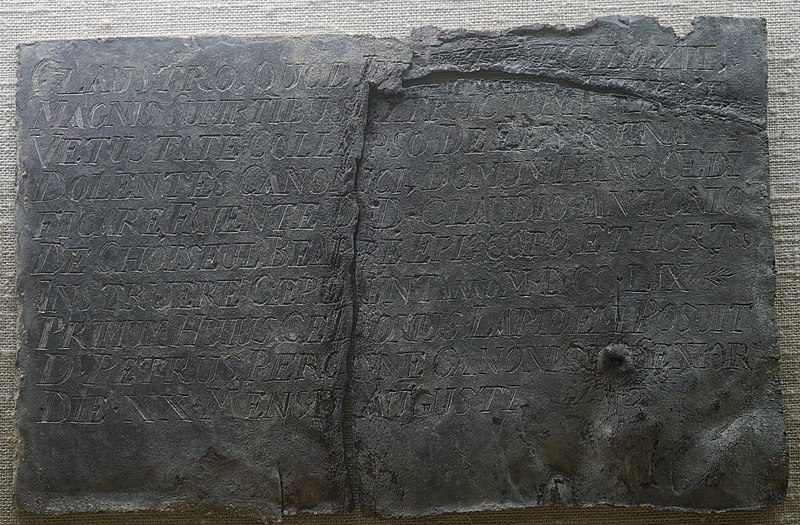 CLAUSTRO, QUOD
MAGNIS SUMPTIBUS
VETUSTATE COLLAPSO DE RUINA
DOLENTES CANONICI, DOMUM HANC OEDI
FICARE FAVENTE D. D. CLAUDIO ANTONIO
DE CHOISEUL BEAUPRE EPISCOPO, ET HORTOS
INSTRUERE COEPERUNT ANNO M.D.CC.LIX
PRIMUM LAPIDEM POSUIT
D. PETRUS CANONICUS SENIOR
DIE XX MENSIS AUGUSTI